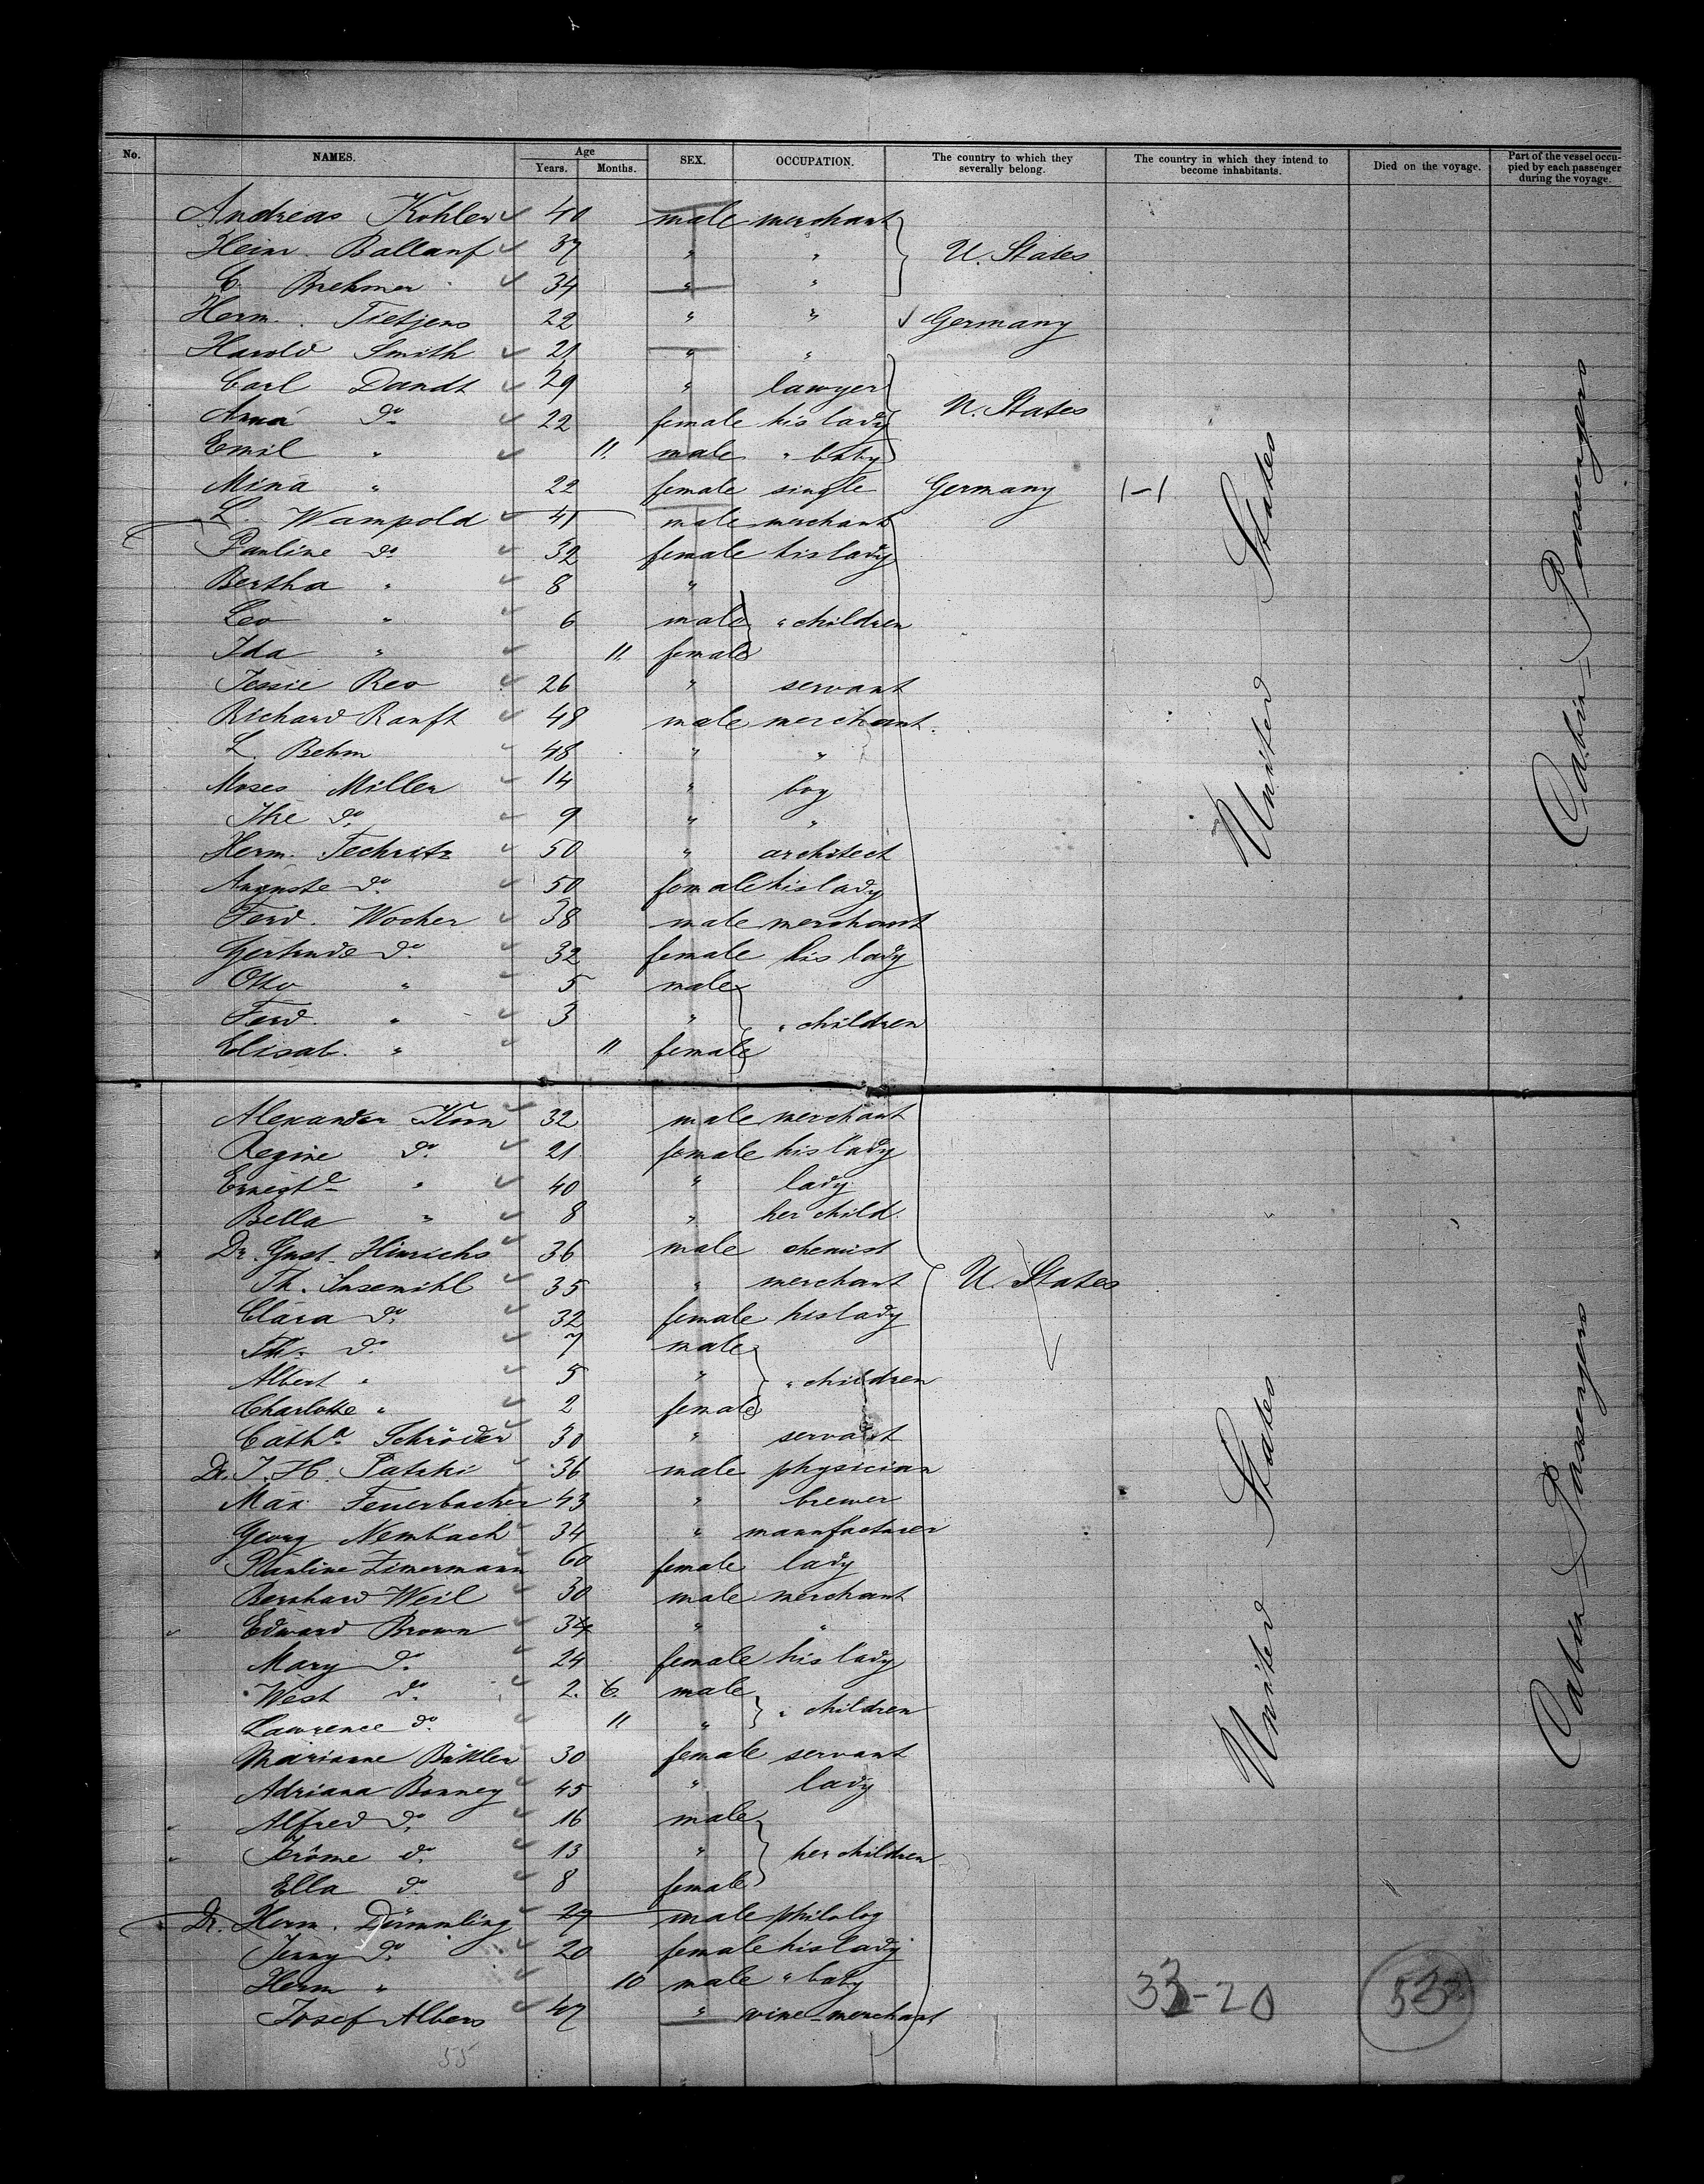 No. NAMES. Age Years. Months. SEX. OCCUPATION. The country to which they severally belong. The country in which they intend to become inhabitants. Died on the voyage. Part of the vessel occupied by each passenger during the voyage.
Andreas Kohler 40 male merchant
Heinr. Ballauf 37 " " U. States
C. Brehmer 34 " "
Herm. Tietjens 22 " " Germany
Harold Smith 21 " "
Carl Dandt 29 " lawyer
Anna do 22 female his lady U. States
Emil " 11 male " baby
Mina " 22 female single Germany 1-1
L. Wampold 41 male merchant
Pauline do 32 female his lady
Bertha " 8 "
Leo " 6 male " children
Ida " 11 female
Jessie Reo 26 " servant
Richard Ranft 48 male merchant.
L. Behm 48 " "
Moses Miller 14 " boy
Ike do 9 " "
Herm. Techritz 50 " architect
Auguste do 50 female his lady
Ferd. Wocher 38 male merchant
Gertrude do 32 female his lady
Otto " 5 male
Ferd. " 3 " " children
Elisab. " 11 female
United States
Cabin Passengers
Alexander Korn 32 male merchant
Regine do 21 female his lady
Erneste " 40 " lady
Bella " 8 " her child.
Dr. Gust. Hinrichs 36 male chemist
Th. Susemihl 35 " merchant U. States
Clara do 32 female his lady
Th. do 7 male
Albert " 5 " " children
Charlotte " 2 female
Catha Schröder 30 " servant
Dr. J. H. Patzki 36 male physician
Max Feuerbacher 43 " brewer
Georg Nembach 34 " manufacturer
Pauline Zimermann 60 female lady
Bernhard Weil 30 male merchant
Edward Brown 34 " "
Mary do 24 female his lady
West do 2. 6. male " children
Lawrence do 11 "
Marianne Büttler 30 female servant
Adriana Bonney 45 " lady
Alfred do 16 male
Jerôme do 13 " her children
Ella do 8 female
Dr. Herm. Dümmling 29 male philolog
Jenny do 20 female his lady
Herm " 10 male " baby
Josef Albers 47 " wine-merchant
33-20
55
United States
Cabin Passengers